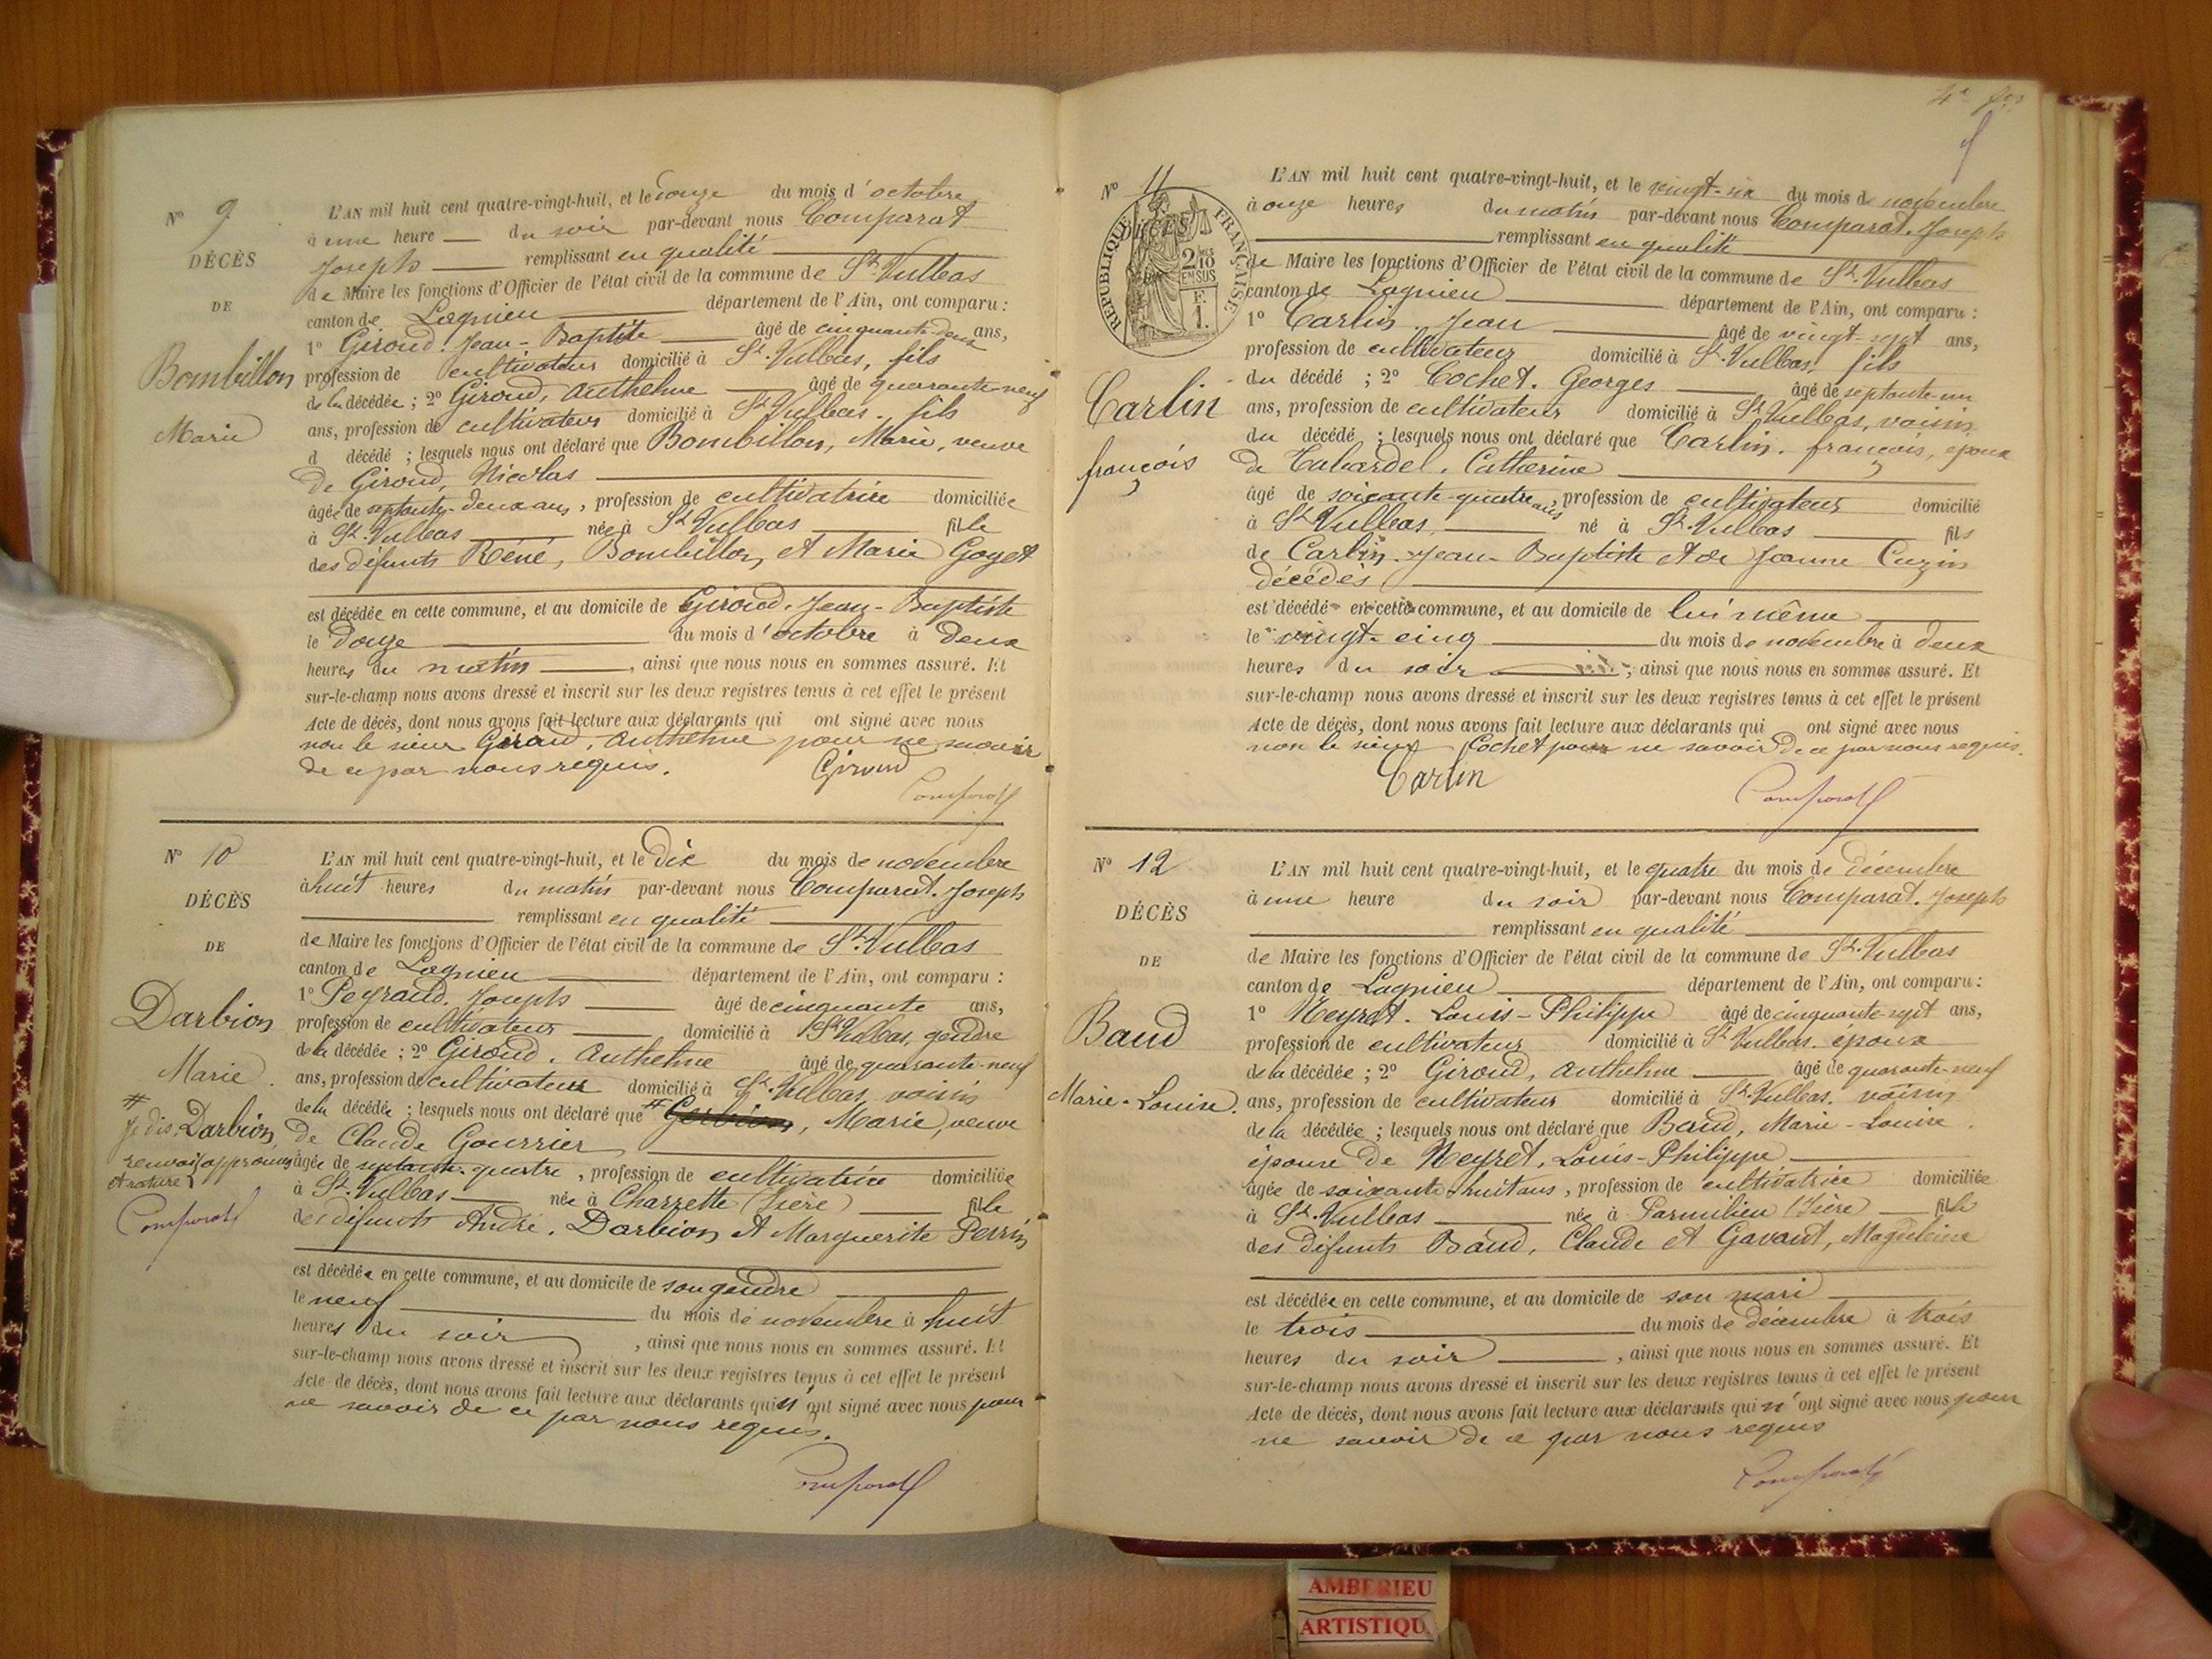 N° 9
DÉCÈS
DE
Bombillon
Marie
L'AN mil huit cent quatre-vingt-huit, et le douze du mois d'octobre
à une heure du soir par-devant nous Comparat
Joseph remplissant en qualité
de Maire les fonctions d'Officier de l'état civil de la commune de St. Vulbas
canton de Lagnieu département de l'Ain, ont comparu :
1° Giroud. Jean-Baptiste âgé de cinquante-deux ans,
profession de cultivateur domicilié à St. Vulbas, fils
de la décédée ; 2° Giroud, Anthelme âgé de quarante-neuf
ans, profession de cultivateur domicilié à St. Vulbas. fils
d décédé ; lesquels nous ont déclaré que Bombillon, Marie, veuve
de Giroud, Nicolas
âgée de septante-deux ans, profession de cultivatrice domiciliée
à St. Vulbas née à St Vulbas fille
des défunts Réné, Bombillon et Marie Goyet
est décédée en cette commune, et au domicile de Giroud. Jean-Baptiste
le douze du mois d'octobre à deux
heures du matin, ainsi que nous nous en sommes assuré. Et
sur-le-champ nous avons dressé et inscrit sur les deux registres tenus à cet effet le présent
Acte de décès, dont nous avons fait lecture aux déclarants qui ont signé avec nous
non le sieur Giroud, Anthelme pour ne savoir
de ce par nous requis. Giroud
Comparat
N° 10
DÉCÈS
DE
Darbion
Marie.
# Je dis, Darbion,
renvoi approuvé
et rature
Comparat
L'AN mil huit cent quatre-vingt-huit, et le dix du mois de novembre
à huit heures du matin par-devant nous Comparat. Joseph
remplissant en qualité
de Maire les fonctions d'Officier de l'état civil de la commune de St. Vulbas
canton de Lagnieu département de l'Ain, ont comparu :
1° Peyraud. Joseph âgé de cinquante ans,
profession de cultivateur domicilié à St Vulbas, gendre
de la décédée ; 2° Giroud. Anthelme âgé de quarante-neuf
ans, profession de cultivateur domicilié à St. Vulbas, voisin
de la décédée ; lesquels nous ont déclaré que # , Marie, veuve
de Claude Gourrier
âgée de septante-quatre, profession de cultivatrice domiciliée
à St. Vulbas née à Charrette (Isère) fille
des défunts André. Darbion et Marguerite Perrin
est décédée en cette commune, et au domicile de son gendre
le neuf du mois de novembre à huit
heures du soir, ainsi que nous nous en sommes assuré. Et
sur-le-champ nous avons dressé et inscrit sur les deux registres tenus à cet effet le présent
Acte de décès, dont nous avons fait lecture aux déclarants qui n'ont signé avec nous pour
ne savoir de ce par nous requis.
Comparat
N° 11
RÉPUBLIQUE FRANÇAISE
DÉCÈS
2/10 EN SUS
F. 1.
Carlin
françois
L'AN mil huit cent quatre-vingt-huit, et le vingt-six du mois de novembre
à onze heures du matin par-devant nous Comparat. Joseph
remplissant en qualité
de Maire les fonctions d'Officier de l'état civil de la commune de St. Vulbas
canton de Lagnieu département de l'Ain, ont comparu :
1° Carlin. Jean âgé de vingt-sept ans,
profession de cultivateur domicilié à St. Vulbas. fils
du décédé ; 2° Cochet. Georges âgé de septante-un
ans, profession de cultivateur domicilié à St. Vulbas, voisin
du décédé ; lesquels nous ont déclaré que Carlin. françois, époux
de Tabardel. Catherine
âgé de soixante-quatre ans, profession de cultivateur domicilié
à St. Vulbas, né à St. Vulbas fils
de Carlin. Jean-Baptiste et de Jeanne Cuzin
décédés
est décédé en cette commune, et au domicile de lui même
le vingt-cinq du mois de novembre à deux
heures du soir, ainsi que nous nous en sommes assuré. Et
sur-le-champ nous avons dressé et inscrit sur les deux registres tenus à cet effet le présent
Acte de décès, dont nous avons fait lecture aux déclarants qui ont signé avec nous
non le sieur Cochet pour ne savoir de ce par nous requis.
Carlin
Comparat
N° 12
DÉCÈS
DE
Baud
Marie-Louise.
L'AN mil huit cent quatre-vingt-huit, et le quatre du mois de décembre
à une heure du soir par-devant nous Comparat. Joseph
remplissant en qualité
de Maire les fonctions d'Officier de l'état civil de la commune de St. Vulbas
canton de Lagnieu département de l'Ain, ont comparu :
1° Neyret. Louis-Philippe âgé de cinquante-sept ans,
profession de cultivateur domicilié à St. Vulbas. époux
de la décédée ; 2° Giroud, Anthelme âgé de quarante-neuf
ans, profession de cultivateur domicilié à St. Vulbas. voisin
de la décédée ; lesquels nous ont déclaré que Baud, Marie-Louise.
épouse de Neyret, Louis-Philippe
âgée de soixante-huit ans, profession de cultivatrice domiciliée
à St. Vulbas née à Parmilieu (Isère) fille
des défunts Baud, Claude et Gavant, Magdeleine
est décédée en cette commune, et au domicile de son mari
le trois du mois de décembre à trois
heures du soir, ainsi que nous nous en sommes assuré. Et
sur-le-champ nous avons dressé et inscrit sur les deux registres tenus à cet effet le présent
Acte de décès, dont nous avons fait lecture aux déclarants qui n'ont signé avec nous pour
ne savoir de ce par nous requis
Comparat
AMBERIEU
ARTISTIQU